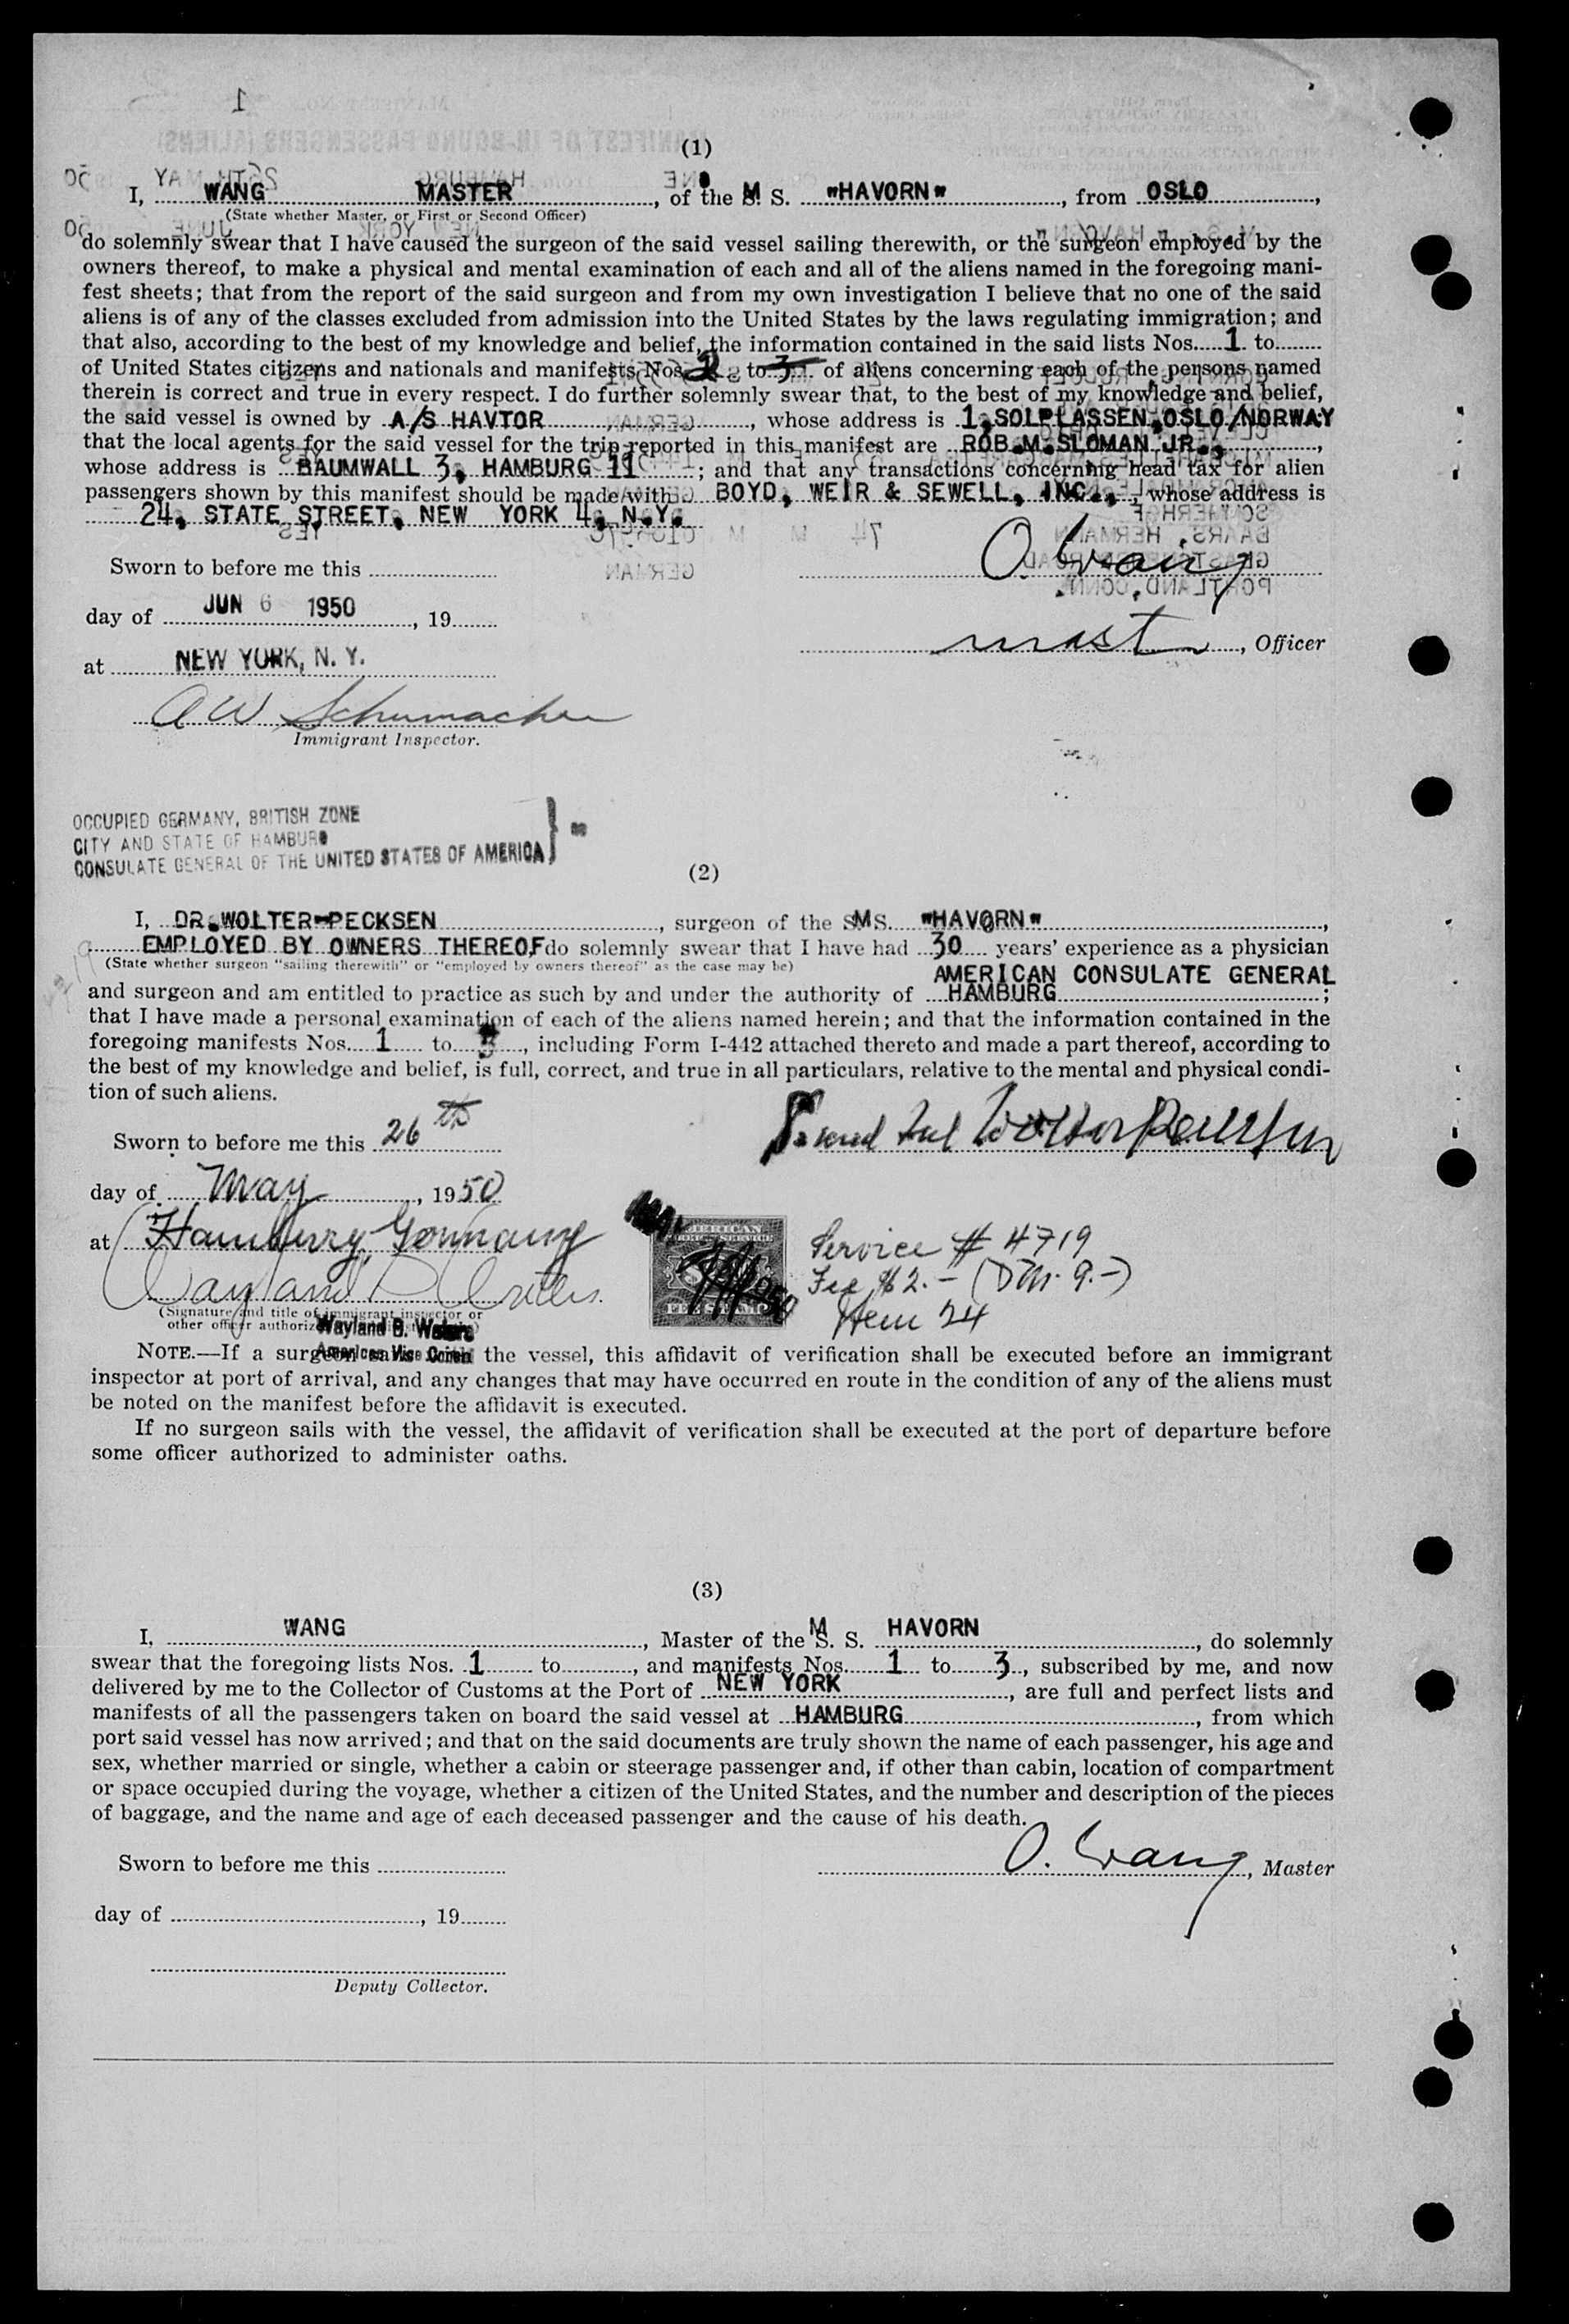 (1)
I, WANG MASTER, of the M S. "HAVORN", from OSLO,
(State whether Master, or First or Second Officer)
do solemnly swear that I have caused the surgeon of the said vessel sailing therewith, or the surgeon employed by the
owners thereof, to make a physical and mental examination of each and all of the aliens named in the foregoing mani-
fest sheets; that from the report of the said surgeon and from my own investigation I believe that no one of the said
aliens is of any of the classes excluded from admission into the United States by the laws regulating immigration; and
that also, according to the best of my knowledge and belief, the information contained in the said lists Nos. 1 to
of United States citizens and nationals and manifests Nos. 2 to 3 of aliens concerning each of the persons named
therein is correct and true in every respect. I do further solemnly swear that, to the best of my knowledge and belief,
the said vessel is owned by A/S HAVTOR, whose address is 1, SOLPLASSEN, OSLO/NORWAY
that the local agents for the said vessel for the trip reported in this manifest are ROB. M. SLOMAN JR.,
whose address is BAUMWALL 3, HAMBURG 11; and that any transactions concerning head tax for alien
passengers shown by this manifest should be made with BOYD, WEIR & SEWELL, INC., whose address is
24, STATE STREET, NEW YORK 4, N.Y.
Sworn to before me this
O. Wang
day of JUN 6 1950, 19
mast, Officer
at NEW YORK, N. Y.
A W Schumacher
Immigrant Inspector.
OCCUPIED GERMANY, BRITISH ZONE
CITY AND STATE OF HAMBURG
CONSULATE GENERAL OF THE UNITED STATES OF AMERICA
(2)
I, DR. WOLTER-PECKSEN, surgeon of the MS. "HAVØRN",
EMPLOYED BY OWNERS THEREOF do solemnly swear that I have had 30 years' experience as a physician
(State whether surgeon "sailing therewith" or "employed by owners thereof" as the case may be)
AMERICAN CONSULATE GENERAL
and surgeon and am entitled to practice as such by and under the authority of HAMBURG;
that I have made a personal examination of each of the aliens named herein; and that the information contained in the
foregoing manifests Nos. 1 to 3, including Form I-442 attached thereto and made a part thereof, according to
the best of my knowledge and belief, is full, correct, and true in all particulars, relative to the mental and physical condi-
tion of such aliens.
Sworn to before me this 26th
day of May, 1950
at Hamburg, Germany
AMERICAN
FEE STAMP
Service # 4719
Fee $2.- (DM. 9.-)
Item 24
(Signature and title of immigrant inspector or
other officer authoriz
Wayland B. Waters
American Vice Consul
NOTE.—If a surgeon sails with the vessel, this affidavit of verification shall be executed before an immigrant
inspector at port of arrival, and any changes that may have occurred en route in the condition of any of the aliens must
be noted on the manifest before the affidavit is executed.
If no surgeon sails with the vessel, the affidavit of verification shall be executed at the port of departure before
some officer authorized to administer oaths.
(3)
I, WANG, Master of the M S. HAVORN, do solemnly
swear that the foregoing lists Nos. 1 to, and manifests Nos. 1 to 3, subscribed by me, and now
delivered by me to the Collector of Customs at the Port of NEW YORK, are full and perfect lists and
manifests of all the passengers taken on board the said vessel at HAMBURG, from which
port said vessel has now arrived; and that on the said documents are truly shown the name of each passenger, his age and
sex, whether married or single, whether a cabin or steerage passenger and, if other than cabin, location of compartment
or space occupied during the voyage, whether a citizen of the United States, and the number and description of the pieces
of baggage, and the name and age of each deceased passenger and the cause of his death.
Sworn to before me this
O. Wang, Master
day of, 19
Deputy Collector.